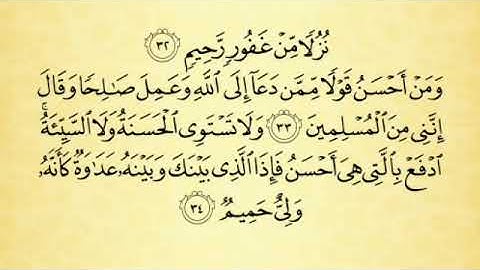 نُزُلًا مِّنْ غَفُورٍ رَّحِيمٍ ٣٢
وَمَنْ أَحْسَنُ قَوْلًا مِّمَّن دَعَآ إِلَى اللَّهِ وَعَمِلَ صَـٰلِحًا وَقَالَ
إِنَّنِي مِنَ الْمُسْلِمِينَ ٣٣ وَلَا تَسْتَوِي الْحَسَنَةُ وَلَا السَّيِّئَةُ ۚ
ادْفَعْ بِالَّتِي هِيَ أَحْسَنُ فَإِذَا الَّذِي بَيْنَكَ وَبَيْنَهُۥ عَدَٰوَةٌ كَأَنَّهُۥ
وَلِيٌّ حَمِيمٌ ٣٤